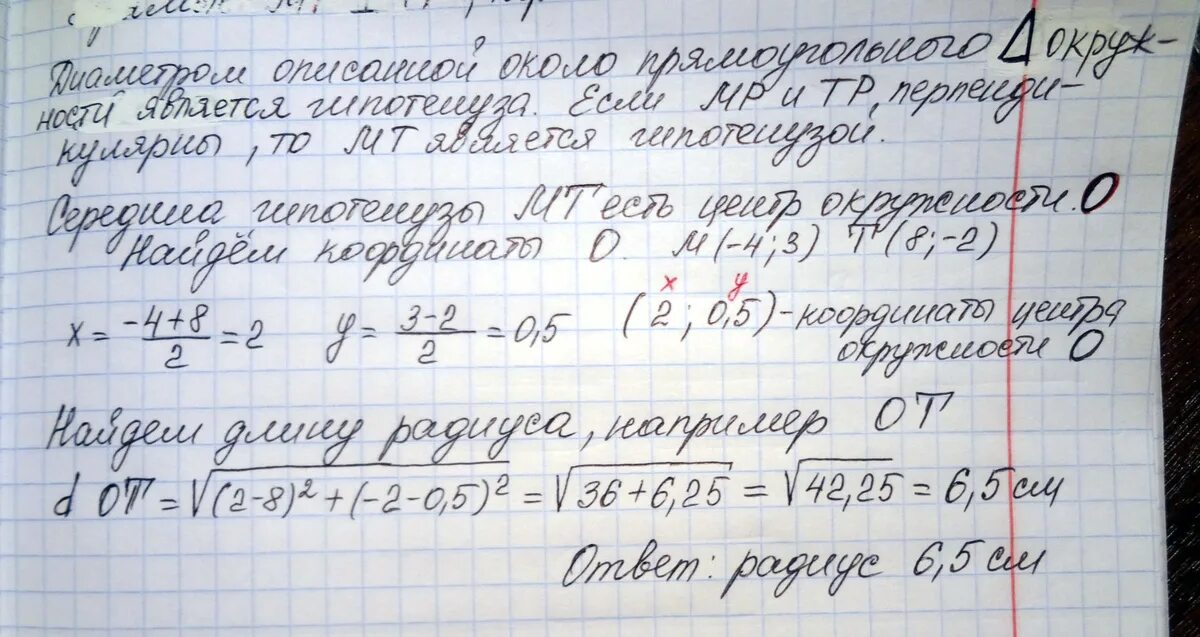 Диаметром описанной около прямоугольного Δ окруж-
ности является гипотенуза. Если MP и TP, перпенди-
кулярны, то MT является гипотенузой.
Середина гипотенузы MT есть центр окружности. O
Найдём координаты O. M(-4;3) T(8;-2)
x y
x = (-4+8)/2 = 2 y = (3-2)/2 = 0,5 (2; 0,5) - координаты центра
окружности O
Найдем длину радиуса, например OT
d OT = √((2-8)² + (-2-0,5)²) = √(36+6,25) = √42,25 = 6,5 см
Ответ: радиус 6,5 см